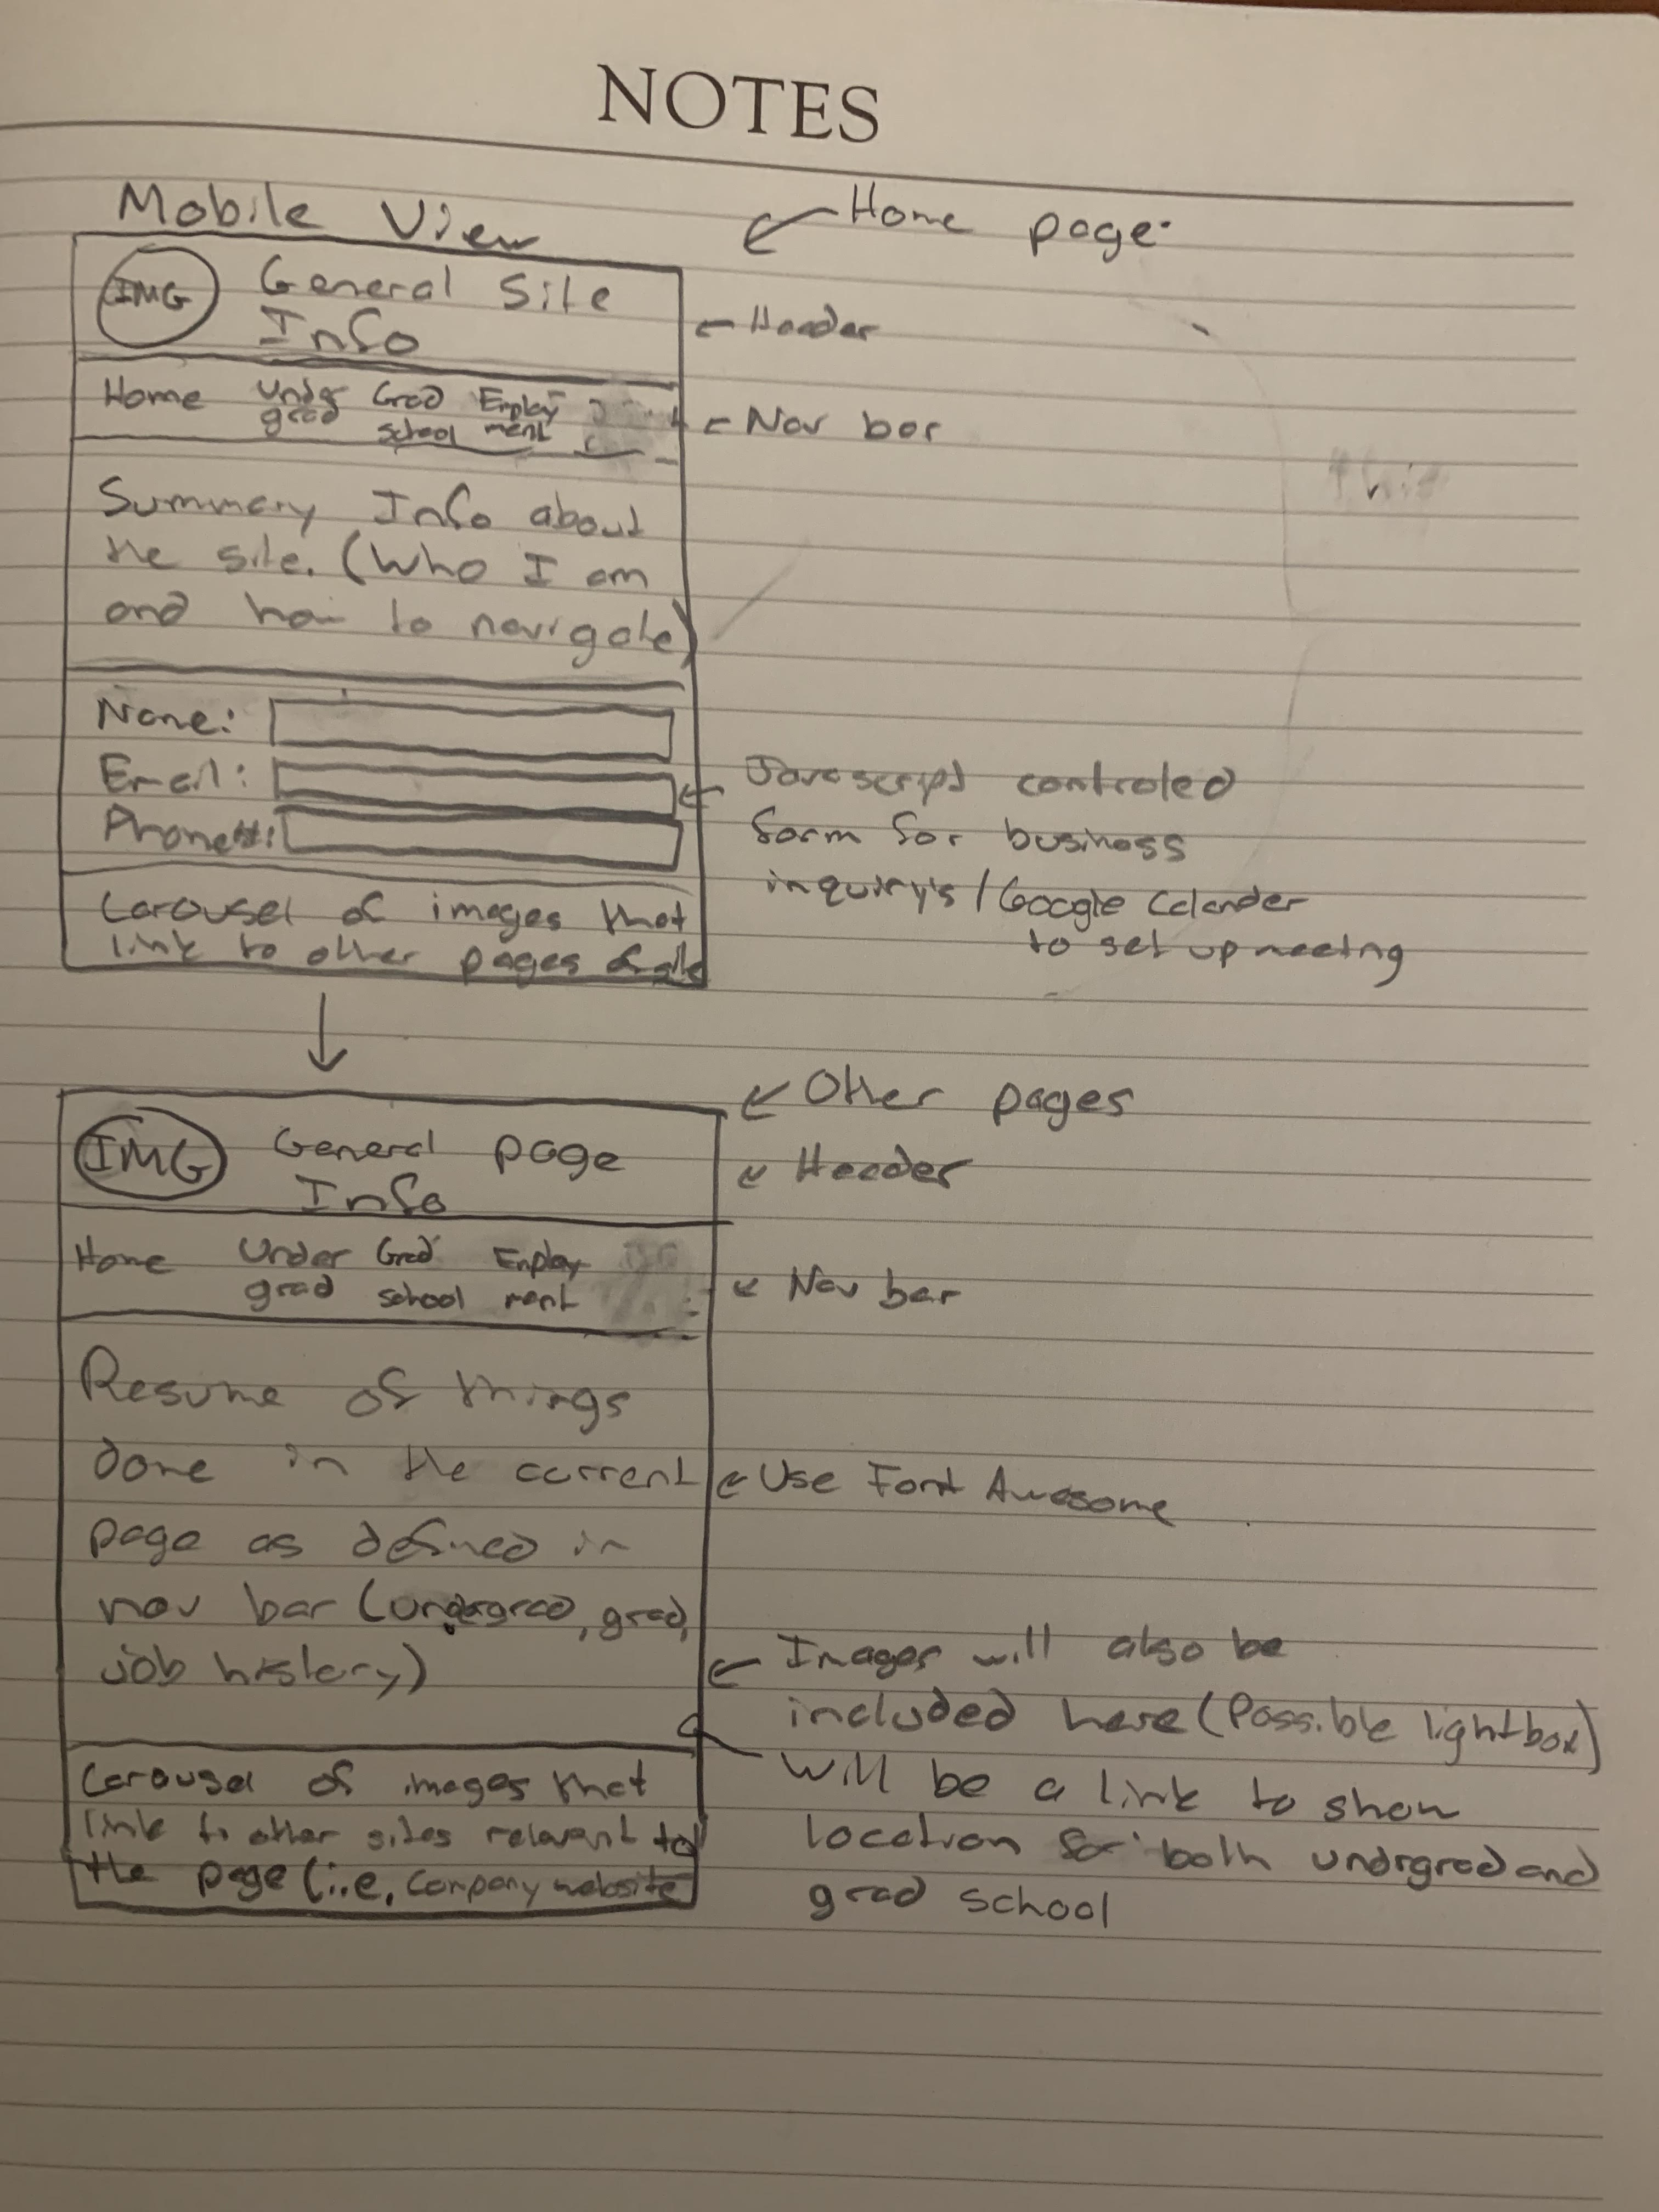 NOTES
Mobile View
Home page
IMG
General Site
Info
Header
Home
Under
grad
Grad
school
Employ
ment
Nav bar
Summary Info about
the site. (Who I am
and how to navigate)
Name:
Email:
Phone#:
Javascript controled
form for business
inquiry's / Google Calander
to set up meeting
Carousel of images that
link to other pages of site
Other pages
IMG
General page
Info
Header
Home
Under
grad
Grad
school
Employ
ment
Nav bar
Resume of things
done in the current
page as defined in
nav bar (undergrad, grad,
job history)
Use Font Awesome
Images will also be
included here (Possible lightbox)
Will be a link to show
location for both undrgrad and
grad school
Carousel of images that
link to other sites relevant to
the page (i.e, company website